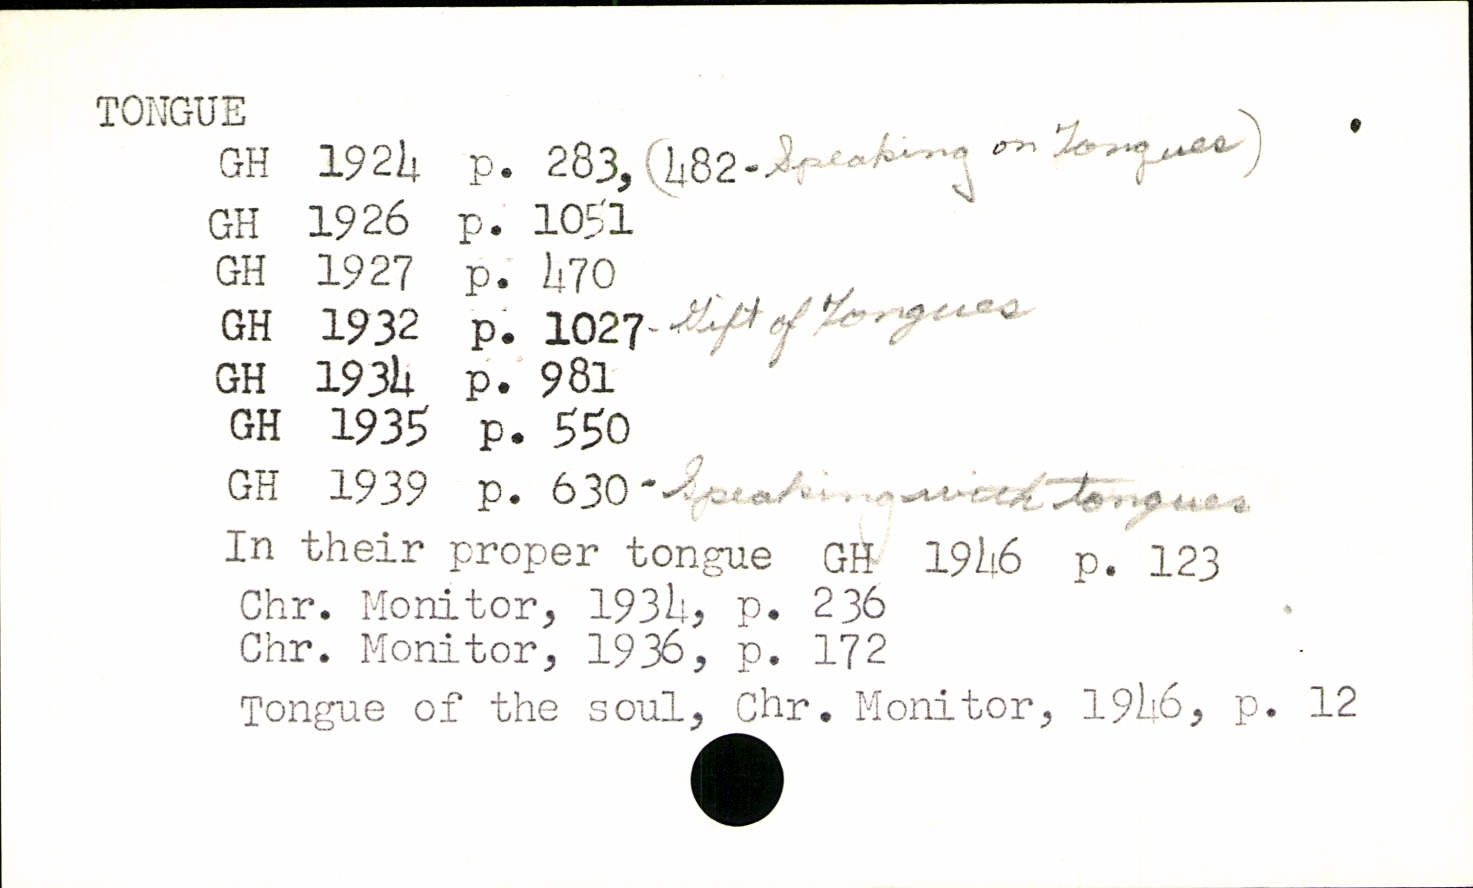 TONGUE
GH 1924 p. 283, (482-Speaking on Tongues)
GH 1926 p. 1051
GH 1927 p. 470
GH 1932 p. 1027-Gift of Tongues
GH 1934 p. 981
GH 1935 p. 550
GH 1939 p. 630-Speaking with tongues
In their proper tongue GH 1946 p. 123
Chr. Monitor, 1934, p. 236
Chr. Monitor, 1936, p. 172
Tongue of the soul, Chr. Monitor, 1946, p. 12